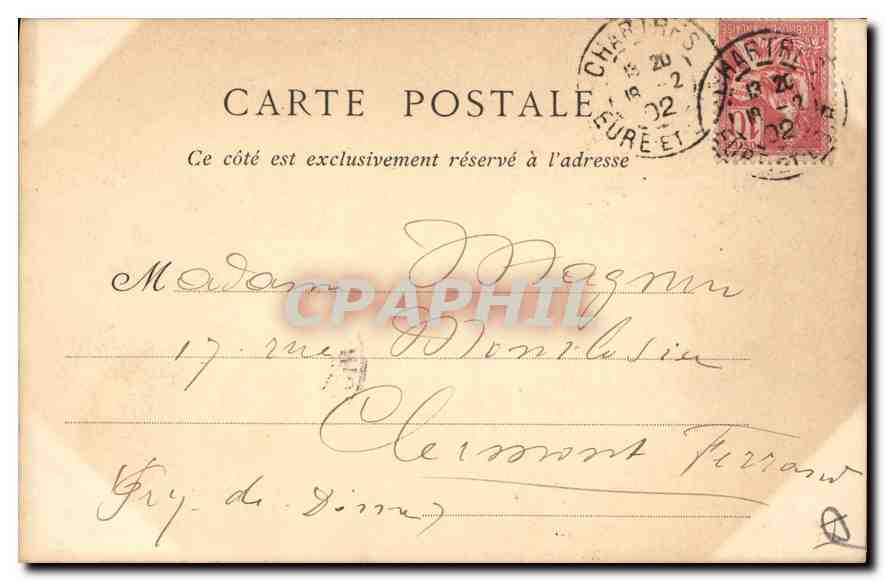 CHARTRES
13 20
18 -2
02
EURE-ET
CHARTRES
13 20
18 -2
02
CARTE POSTALE
Ce côté est exclusivement réservé à l'adresse
Madame Magnin
17 rue Montlosier
Clermont Ferrand
Puy-de-Dôme
CPAPHIL